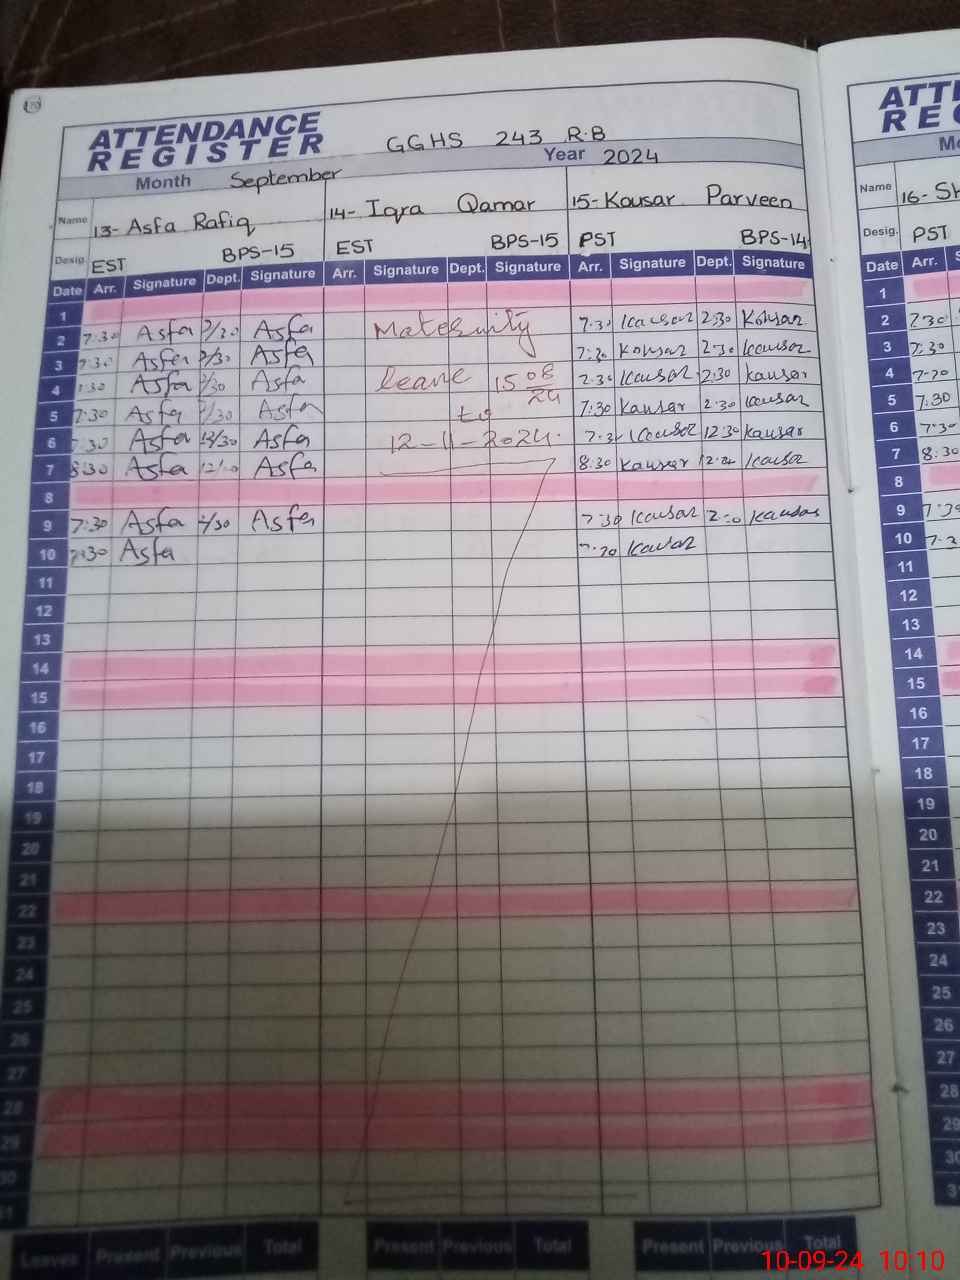 170
ATTENDANCE
REGISTER
GGHS 243 R.B
Month September Year 2024
Name 13- Asfa Rafiq 14- Iqra Qamar 15- Kousar Parveen
Desig. EST BPS-15 EST BPS-15 PST BPS-14
Date Arr. Signature Dept. Signature Arr. Signature Dept. Signature Arr. Signature Dept. Signature
1
2 7:30 Asfa 2/30 Asfa Maternity 7:30 Kausar 2:30 Kousar
3 7:30 Asfa 2/30 Asfa 7:30 Kousar 2:30 Kausar
4 7:30 Asfa 2/30 Asfa leave 15 08 24 Kausar 2:30 Kausar
5 7:30 Asfa 2/30 Asfa to 7:30 Kausar 2:30 Kausar
6 7:30 Asfa 12/30 Asfa 12-11-2024. Kausar 12:30 Kausar
7 8:30 Asfa Asfa 8:30 Kausar Kausar
8
9 7:30 Asfa 2/30 Asfa 7:30 Kausar Kausar
10 7:30 Asfa Kausar
11
12
13
14
15
16
17
18
19
20
21
22
23
24
25
26
27
28
29
30
31
Leaves Present Previous Total Present Previous Total Present Previous Total
ATT
REG
Name 16- Sh
Desig. PST
Date Arr.
1
2 7:30
3 7:30
4
5 7:30
6 7:30
7 8:30
8
9 7:30
10
11
12
13
14
15
16
17
18
19
20
21
22
23
24
25
26
27
28
29
30
31
10-09-24 10:10